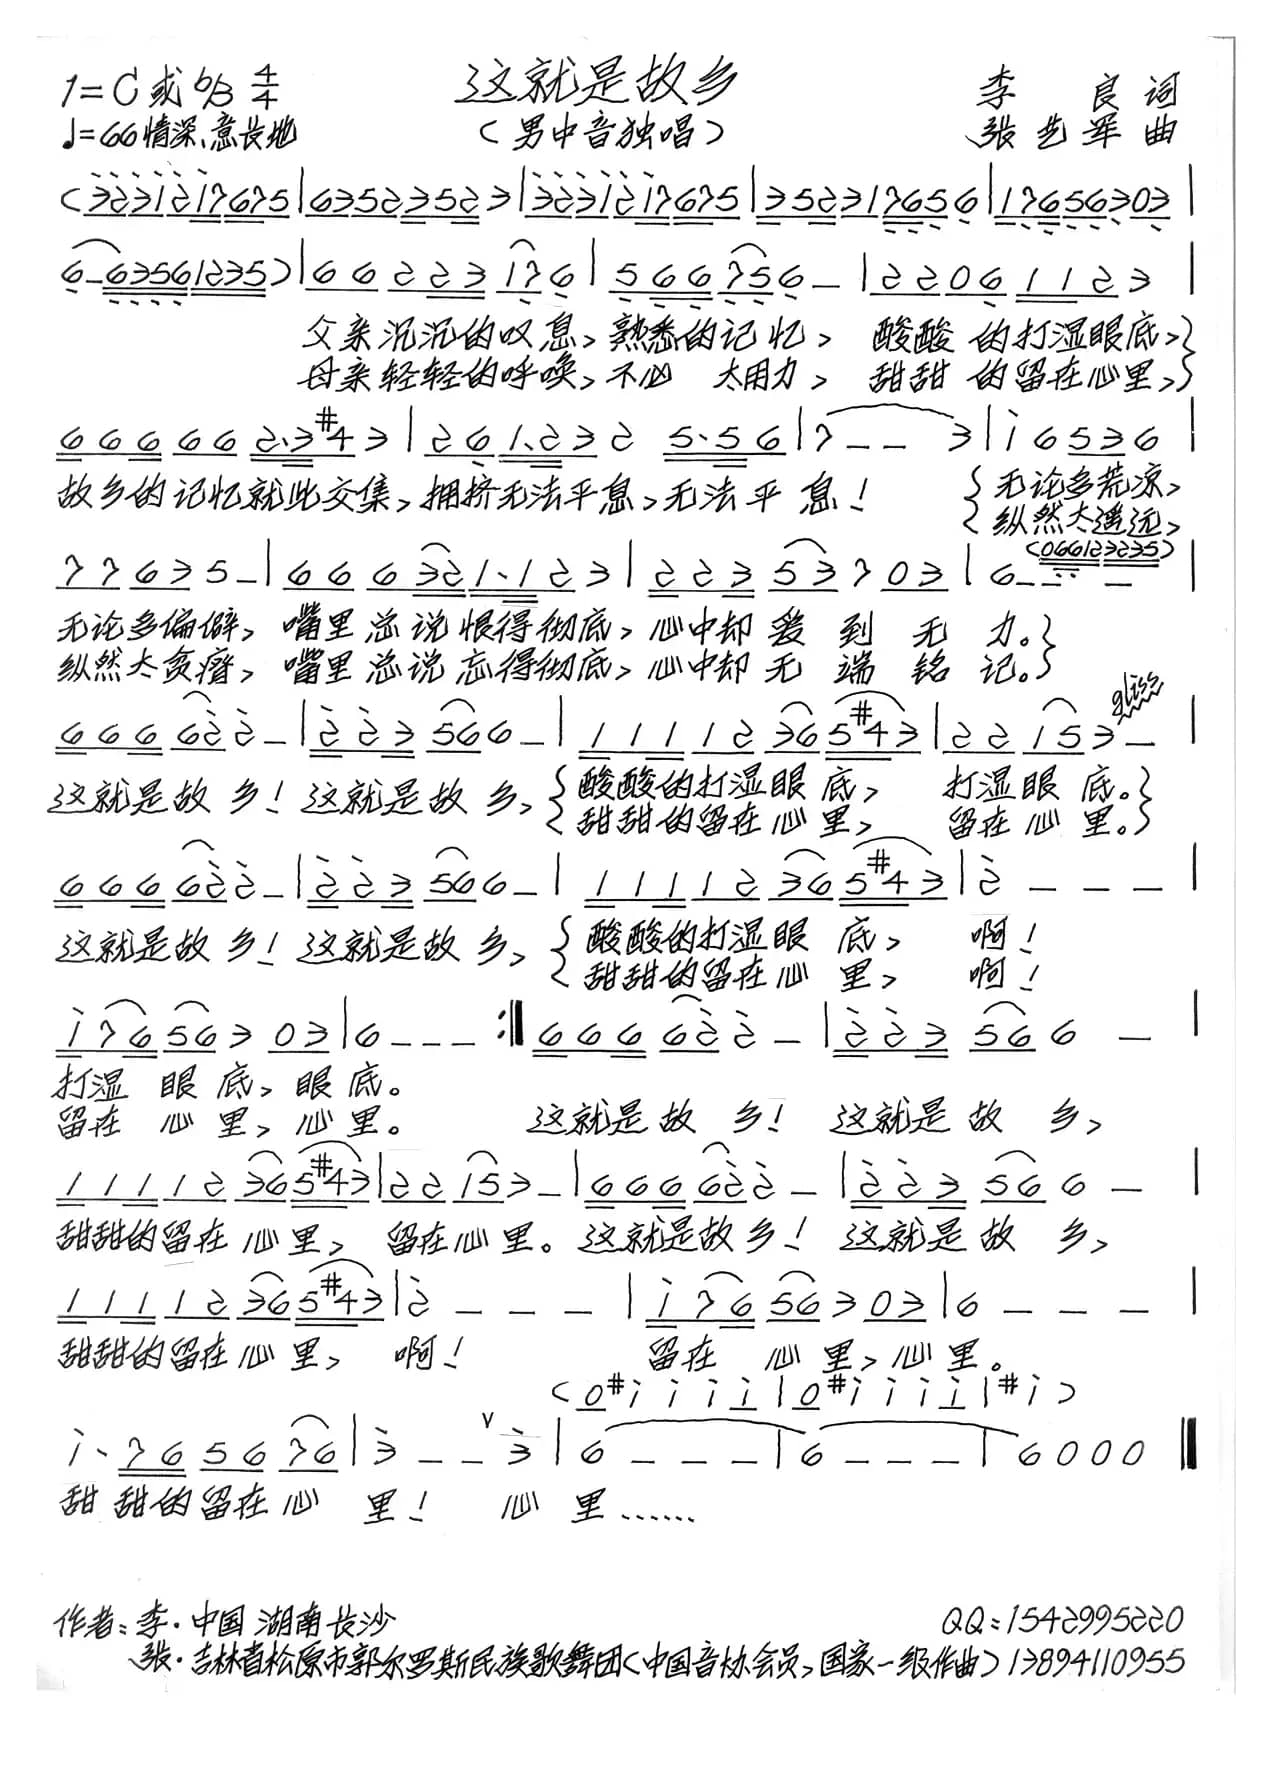 1=C或♭B 4/4 这就是故乡 李良词
♩=66情深、意长地 (男中音独唱) 张艺军曲
(3̇2̇3̇1̇2̇1̇7675|63523523|3̇2̇3̇1̇2̇1̇7675|352317656|17656303|
6-63561235)|66223176|566756-|22061123|
父亲沉沉的叹息、熟悉的记忆, 酸酸的打湿眼底,}
母亲轻轻的呼唤、不必太用力, 甜甜的留在心里,}
666662·3#43|261·232 5·56|7--3|1̇6536|
故乡的记忆就此交集、拥挤无法平息、无法平息! {无论多荒凉,
{纵然太遥远,
(066123235)
77635-|666321·123|22353703|6---|
无论多偏僻, 嘴里总说恨得彻底, 心中却爱到无力。}
纵然太贫瘠, 嘴里总说忘得彻底, 心中却无端铭记。}
gliss
66662̇2̇-|2̇2̇3566-|11112365#43|22153-|
这就是故乡! 这就是故乡, {酸酸的打湿眼底, 打湿眼底。}
{甜甜的留在心里, 留在心里。}
66662̇2̇-|2̇2̇3566-|11112365#43|2̇---|
这就是故乡! 这就是故乡, {酸酸的打湿眼底, 啊!
{甜甜的留在心里, 啊!
1̇7656303|6---:‖66662̇2̇-|2̇2̇3566-|
打湿眼底, 眼底。
留在心里, 心里。 这就是故乡! 这就是故乡,
11112365#43|22153-|66662̇2̇-|2̇2̇3566-|
甜甜的留在心里, 留在心里。这就是故乡! 这就是故乡,
11112365#43|2̇---|1̇7656303|6---|
甜甜的留在心里, 啊! 留在心里, 心里。
(0#1̇1̇1̇1̇|0#1̇1̇1̇1̇|#1̇)
1̇·765676|3̇--∨3̇|6---|6---|6000‖
甜甜的留在心里! 心里……
作者:李·中国湖南长沙 QQ:1542995220
张·吉林省松原市郭尔罗斯民族歌舞团(中国音协会员,国家一级作曲)13894110955